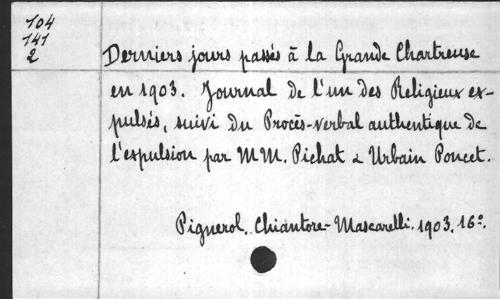 104
141
2
Derniers jours passés à la Grande Chartreuse
en 1903. Journal de l'un des Religieux ex-
pulsés, suivi du Procès-verbal authentique de
l'expulsion par MM. Pichat & Urbain Poncet.
Pignerol. Chiantore-Mascarelli. 1903. 16º.